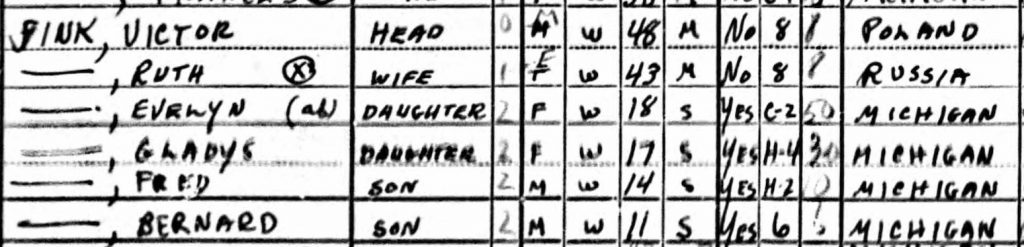 FINK, VICTOR HEAD 0 M W 48 M No 8 8 POLAND
——, RUTH Ⓧ WIFE 1 F W 43 M No 8 8 RUSSIA
——, EVELYN (ab) DAUGHTER 2 F W 18 S Yes C-2 50 MICHIGAN
——, GLADYS DAUGHTER 2 F W 17 S Yes H-4 30 MICHIGAN
——, FRED SON 2 M W 14 S Yes H-2 MICHIGAN
——, BERNARD SON 2 M W 11 S Yes 6 MICHIGAN